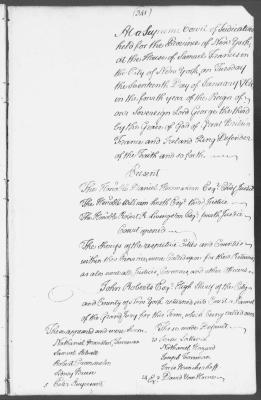 (341)
At a Supreme Court of Judicature
held for the Province of New York,
at the House of Samuel Francis in
the City of New York, on Tuesday
the Seventeenth Day of January
in the fourth year of the Reign of
our Sovereign Lord George the third
by the Grace of God of Great Britain
France and Ireland King Defender
of the Faith and so forth.
Present
The Honble Daniel Horsmanden Esqr Chief Justice
The Honble William Smith Esqr third Justice
The Honble Robert R. Livingston Esqr fourth Justice
Court opened
The Sheriffs of the respective Cities and Counties
within this Province were Called upon for their Returns
as also several Justices, Coroners, and other Officers
John Roberts Esqr High Sheriff of the City
and County of New York returned into Court a Pannel
of the Grand Jury for this Term, which being called over
These appeared and were sworn.
These made Default
Nathaniel
Samuel
Robert
Sidney Breese
5 Peter
Nathaniel
Joseph
David